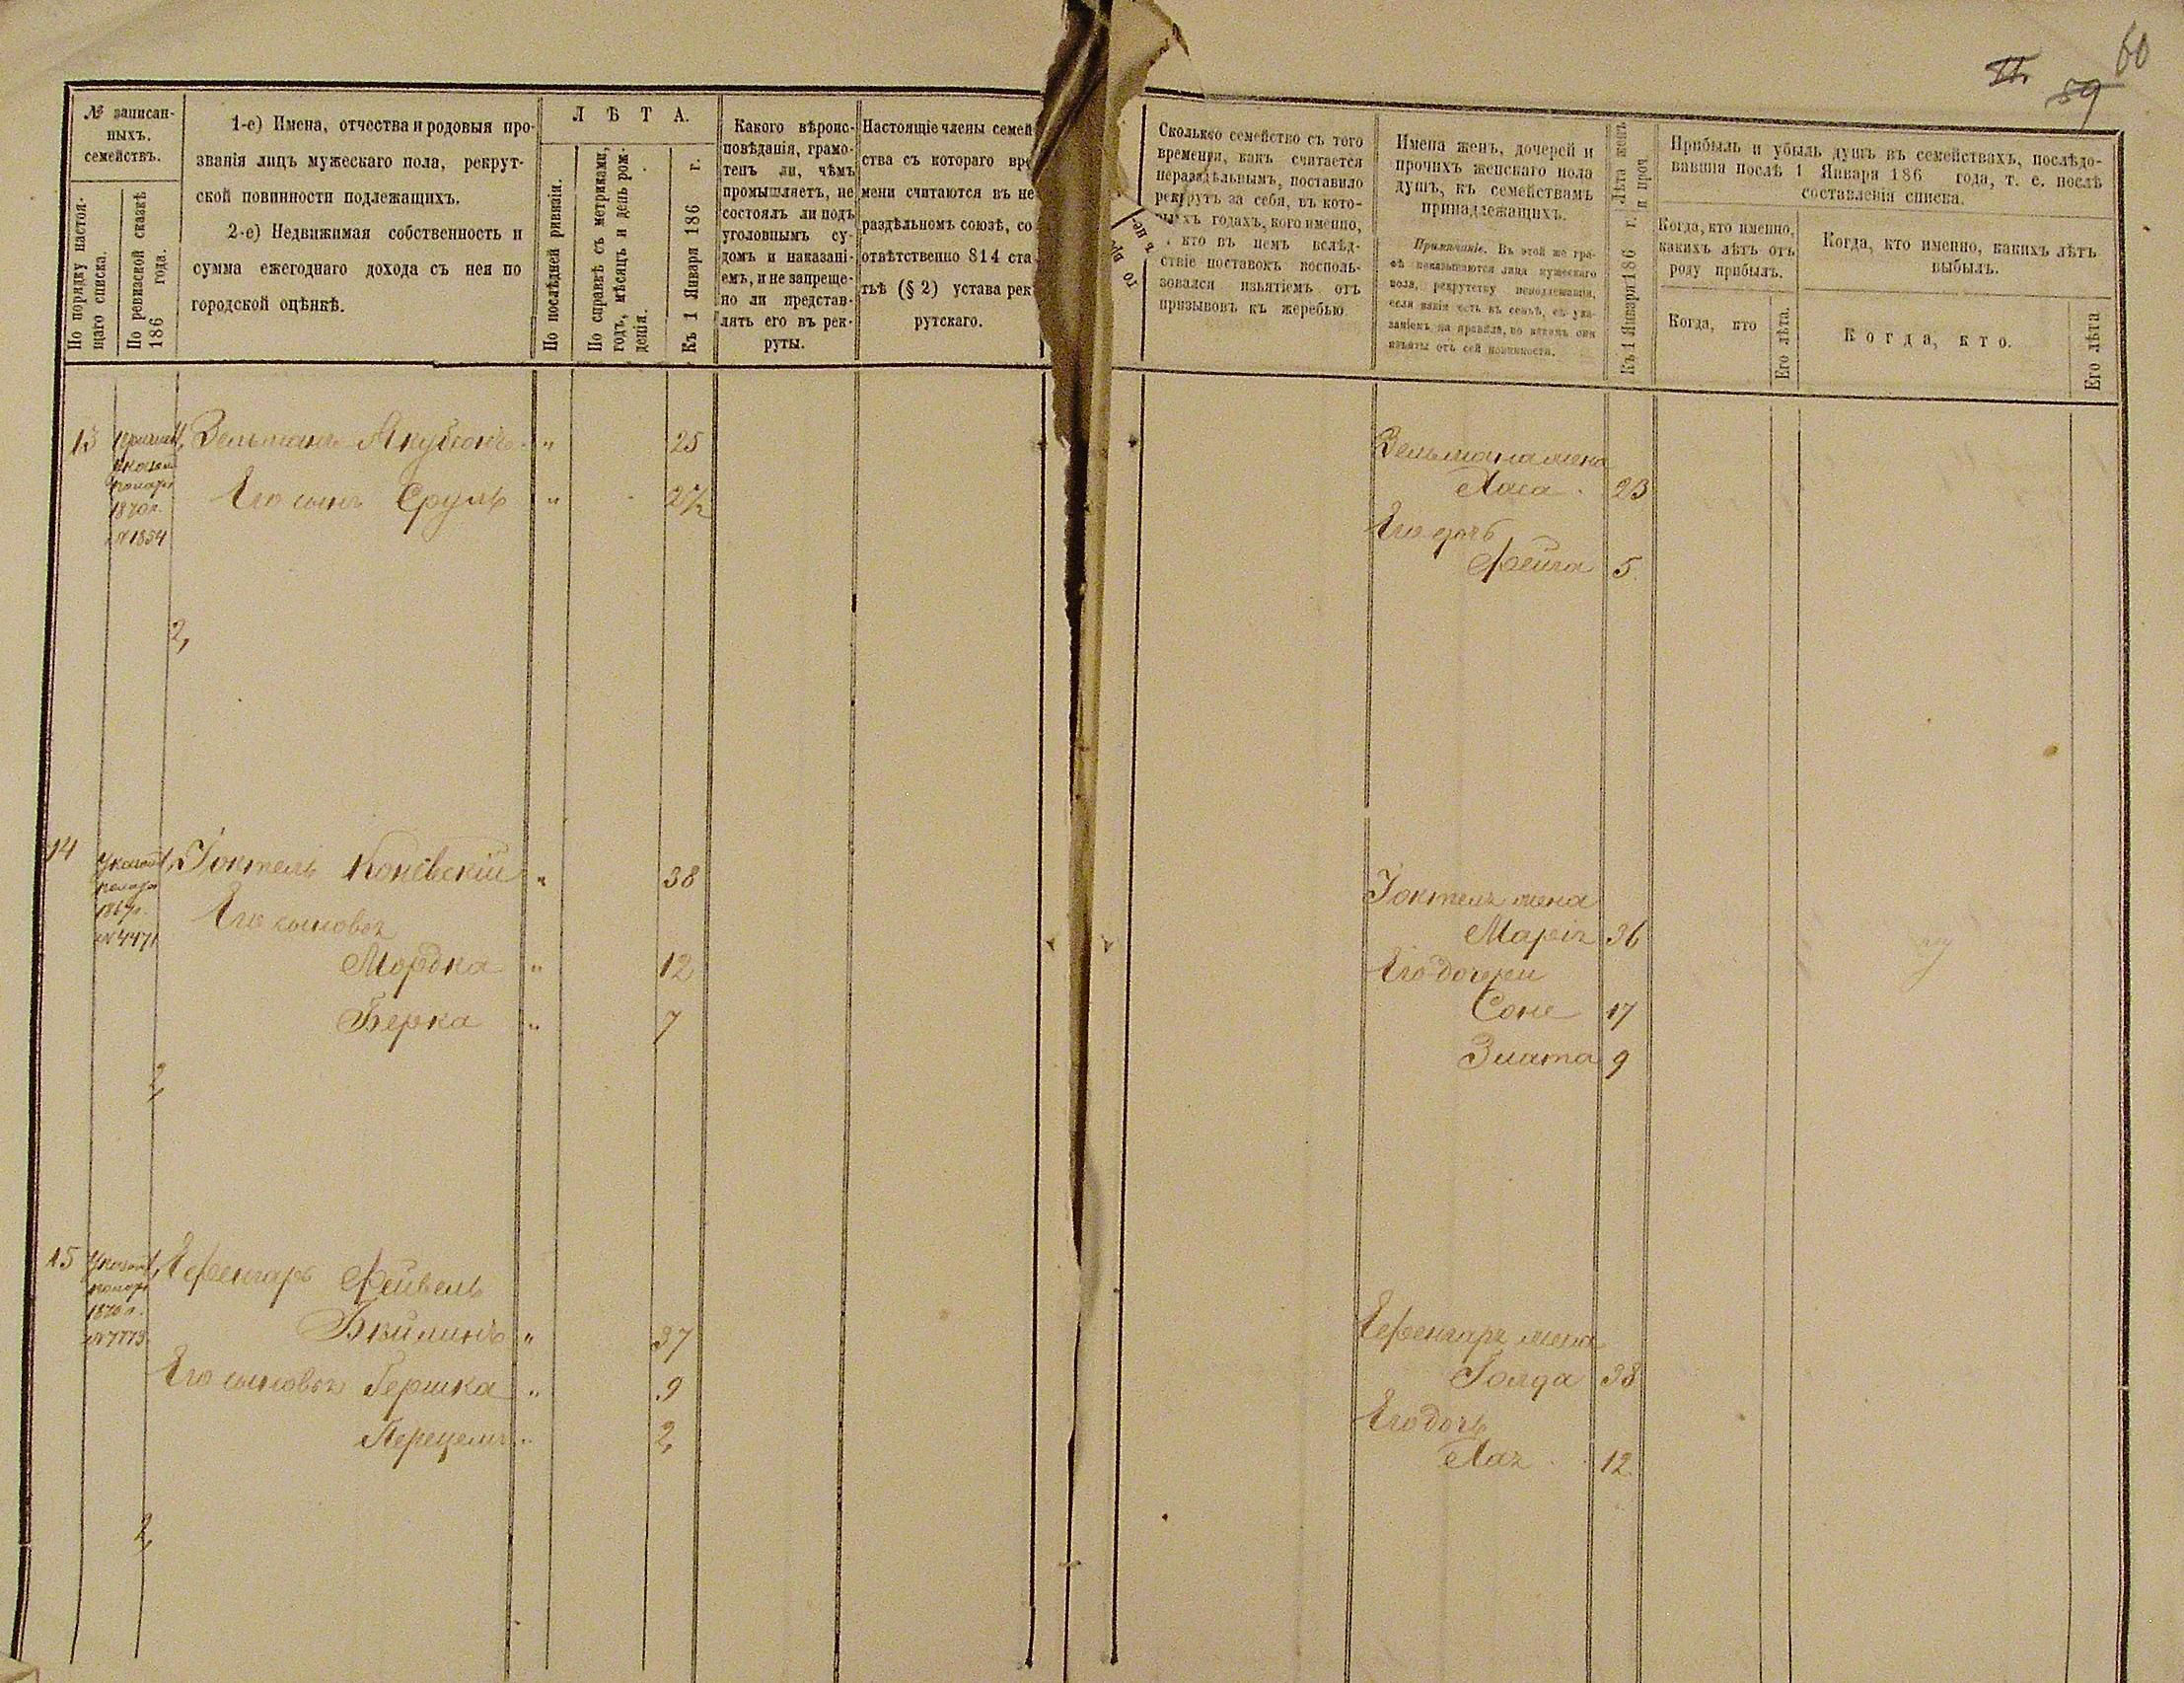 60
59
№ записан-
ныхъ.
семействъ.
По порядку настоя-
щаго списка.
По ревизской сказкѣ
186 года.
1-е) Имена, отчества и родовыя про-
званія лицъ мужескаго пола, рекрут-
ской повинности подлежащихъ.
2-е) Недвижимая собственность и
сумма ежегоднаго дохода съ нея по
городской оцѣнкѣ.
ЛѢТА.
По послѣдней ривизіи.
По справкѣ съ метриками,
годъ, мѣсяцъ и день рож-
денія.
Къ 1 Января 186 г.
Какого вѣроис-
повѣданія, грамо-
тенъ ли, чѣмъ
промышляетъ, не
состоялъ ли подъ
уголовнымъ су-
домъ и наказані-
емъ, и не запреще-
но ли представ-
лять его въ рек-
руты.
Настоящіе члены семей-
ства съ котораго вре
мени считаются въ не
раздѣльномъ союзѣ, со
отвѣтственно 814 ста
тьѣ (§ 2) устава рек
рутскаго.
Сколько семейство съ того
времени, какъ считается
нераздѣльнымъ, поставило
рекрутъ за себя, въ кото-
рыхъ годахъ, кого именно,
кто въ немъ вслѣд-
ствіе поставокъ восполь-
зовался изъятіемъ отъ
призывовъ къ жеребью
Имена женъ, дочерей и
прочихъ женскаго пола
душъ, къ семействамъ
принадлежащихъ.
Примѣчаніе. Въ этой же гра-
фѣ показываются лица мужескаго
пола, рекрутству неподлежащія,
если такія есть въ семьѣ, съ ука-
заніемъ на правила, по коимъ они
изъяты отъ сей повинности.
Лѣта женъ
и проч
Къ 1 Января 186 г.
Прибыль и убыль душъ въ семействахъ, послѣдо-
вавшія послѣ 1 Января 186 года, т. е. послѣ
составленія списка.
Когда, кто именно,
какихъ лѣтъ отъ
роду прибылъ.
Когда, кто
Его лѣта.
Когда, кто именно, какихъ лѣтъ
выбылъ.
Когда, кто.
Его лѣта
13
1870 г.
№ 1854
Зельманъ Якубсонъ " 25
Его сынъ Сруль " 2½
Зельмана жена
Хаса 23
Его дочь
Фейга 5
2,
14
Указомъ
палаты
1867 г.
№ 4471
Іоктель Коневскій " 38
Его сыновья
Мордка " 12
Берка " 7
Іоктеля жена
Марія 36
Его дочери
Соне 17
Злата 9
2,
15
Указомъ
палаты
1870 г.
№ 7773
Фейвель
" 37
Его сыновья Гершка " 9
" 2,
жена
Голда 38
Его дочь
Хая 12
2,